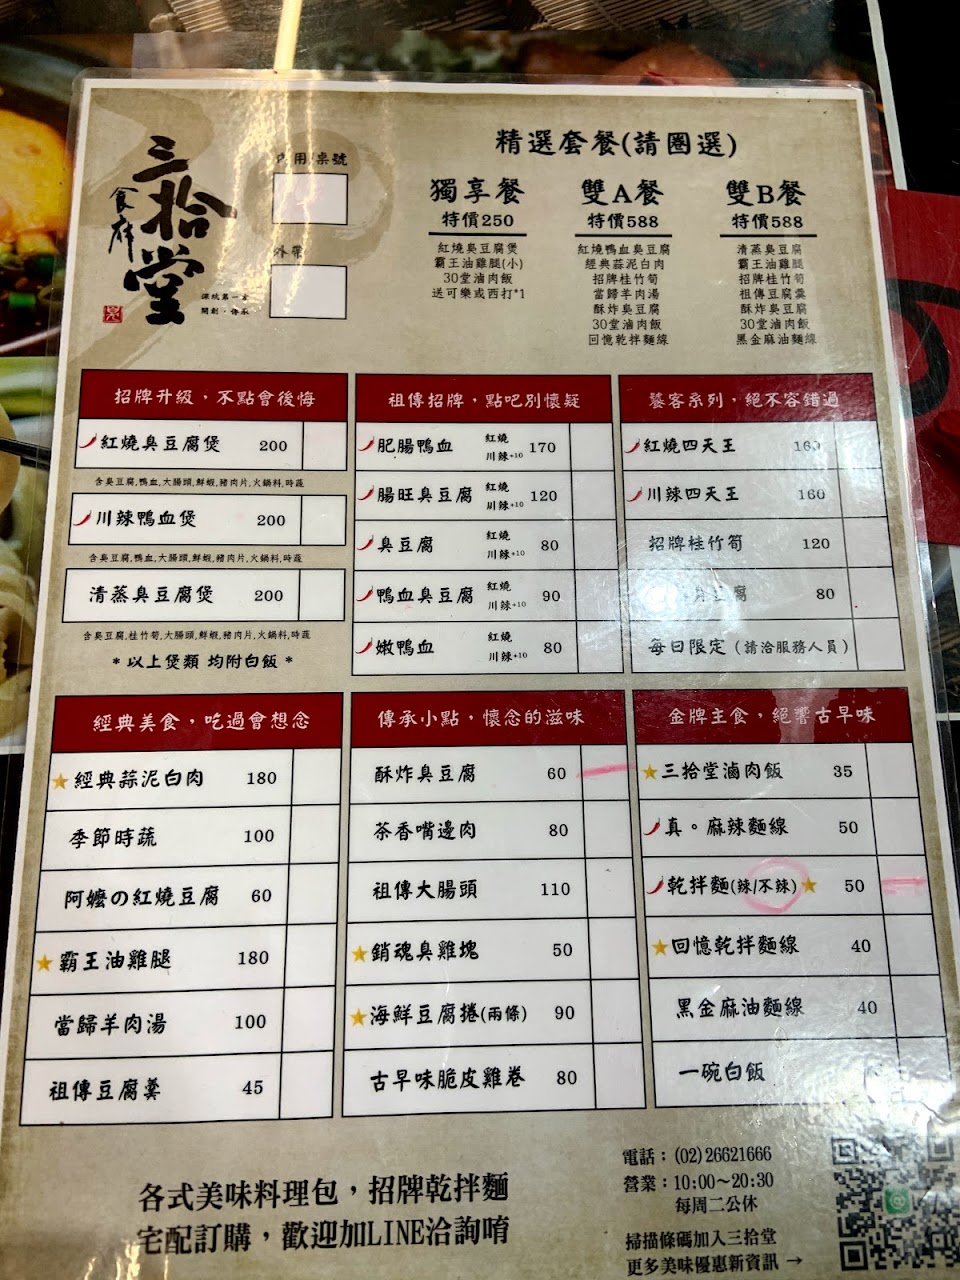 三拾堂
食府
深坑第一家
開創·傳承
內用/桌號
外帶
精選套餐(請圈選)
獨享餐
特價250
紅燒臭豆腐煲
霸王油雞腿(小)
30堂滷肉飯
送可樂或西打*1
雙A餐
特價588
紅燒鴨血臭豆腐
經典蒜泥白肉
招牌桂竹筍
當歸羊肉湯
酥炸臭豆腐
30堂滷肉飯
回憶乾拌麵線
雙B餐
特價588
清蒸臭豆腐
霸王油雞腿
招牌桂竹筍
祖傳豆腐羹
酥炸臭豆腐
30堂滷肉飯
黑金麻油麵線
招牌升級，不點會後悔
紅燒臭豆腐煲 200
含臭豆腐,鴨血,大腸頭,鮮蝦,豬肉片,火鍋料,時蔬
川辣鴨血煲 200
含臭豆腐,鴨血,大腸頭,鮮蝦,豬肉片,火鍋料,時蔬
清蒸臭豆腐煲 200
含臭豆腐,桂竹筍,大腸頭,鮮蝦,豬肉片,火鍋料,時蔬
*以上煲類 均附白飯*
祖傳招牌，點吧別懷疑
肥腸鴨血 紅燒 川辣+10 170
腸旺臭豆腐 紅燒 川辣+10 120
臭豆腐 紅燒 川辣+10 80
鴨血臭豆腐 紅燒 川辣+10 90
嫩鴨血 紅燒 川辣+10 80
饕客系列，絕不容錯過
紅燒四天王 160
川辣四天王 160
招牌桂竹筍 120
臭豆腐 80
每日限定（請洽服務人員）
經典美食，吃過會想念
經典蒜泥白肉 180
季節時蔬 100
阿嬤の紅燒豆腐 60
霸王油雞腿 180
當歸羊肉湯 100
祖傳豆腐羹 45
傳承小點，懷念的滋味
酥炸臭豆腐 60
茶香嘴邊肉 80
祖傳大腸頭 110
銷魂臭雞塊 50
海鮮豆腐捲(兩條) 90
古早味脆皮雞卷 80
金牌主食，絕響古早味
三拾堂滷肉飯 35
真。麻辣麵線 50
乾拌麵(辣/不辣) 50
回憶乾拌麵線 40
黑金麻油麵線 40
一碗白飯
各式美味料理包，招牌乾拌麵
宅配訂購，歡迎加LINE洽詢唷
電話：(02)26621666
營業：10:00～20:30
每周二公休
掃描條碼加入三拾堂
更多美味優惠新資訊 →